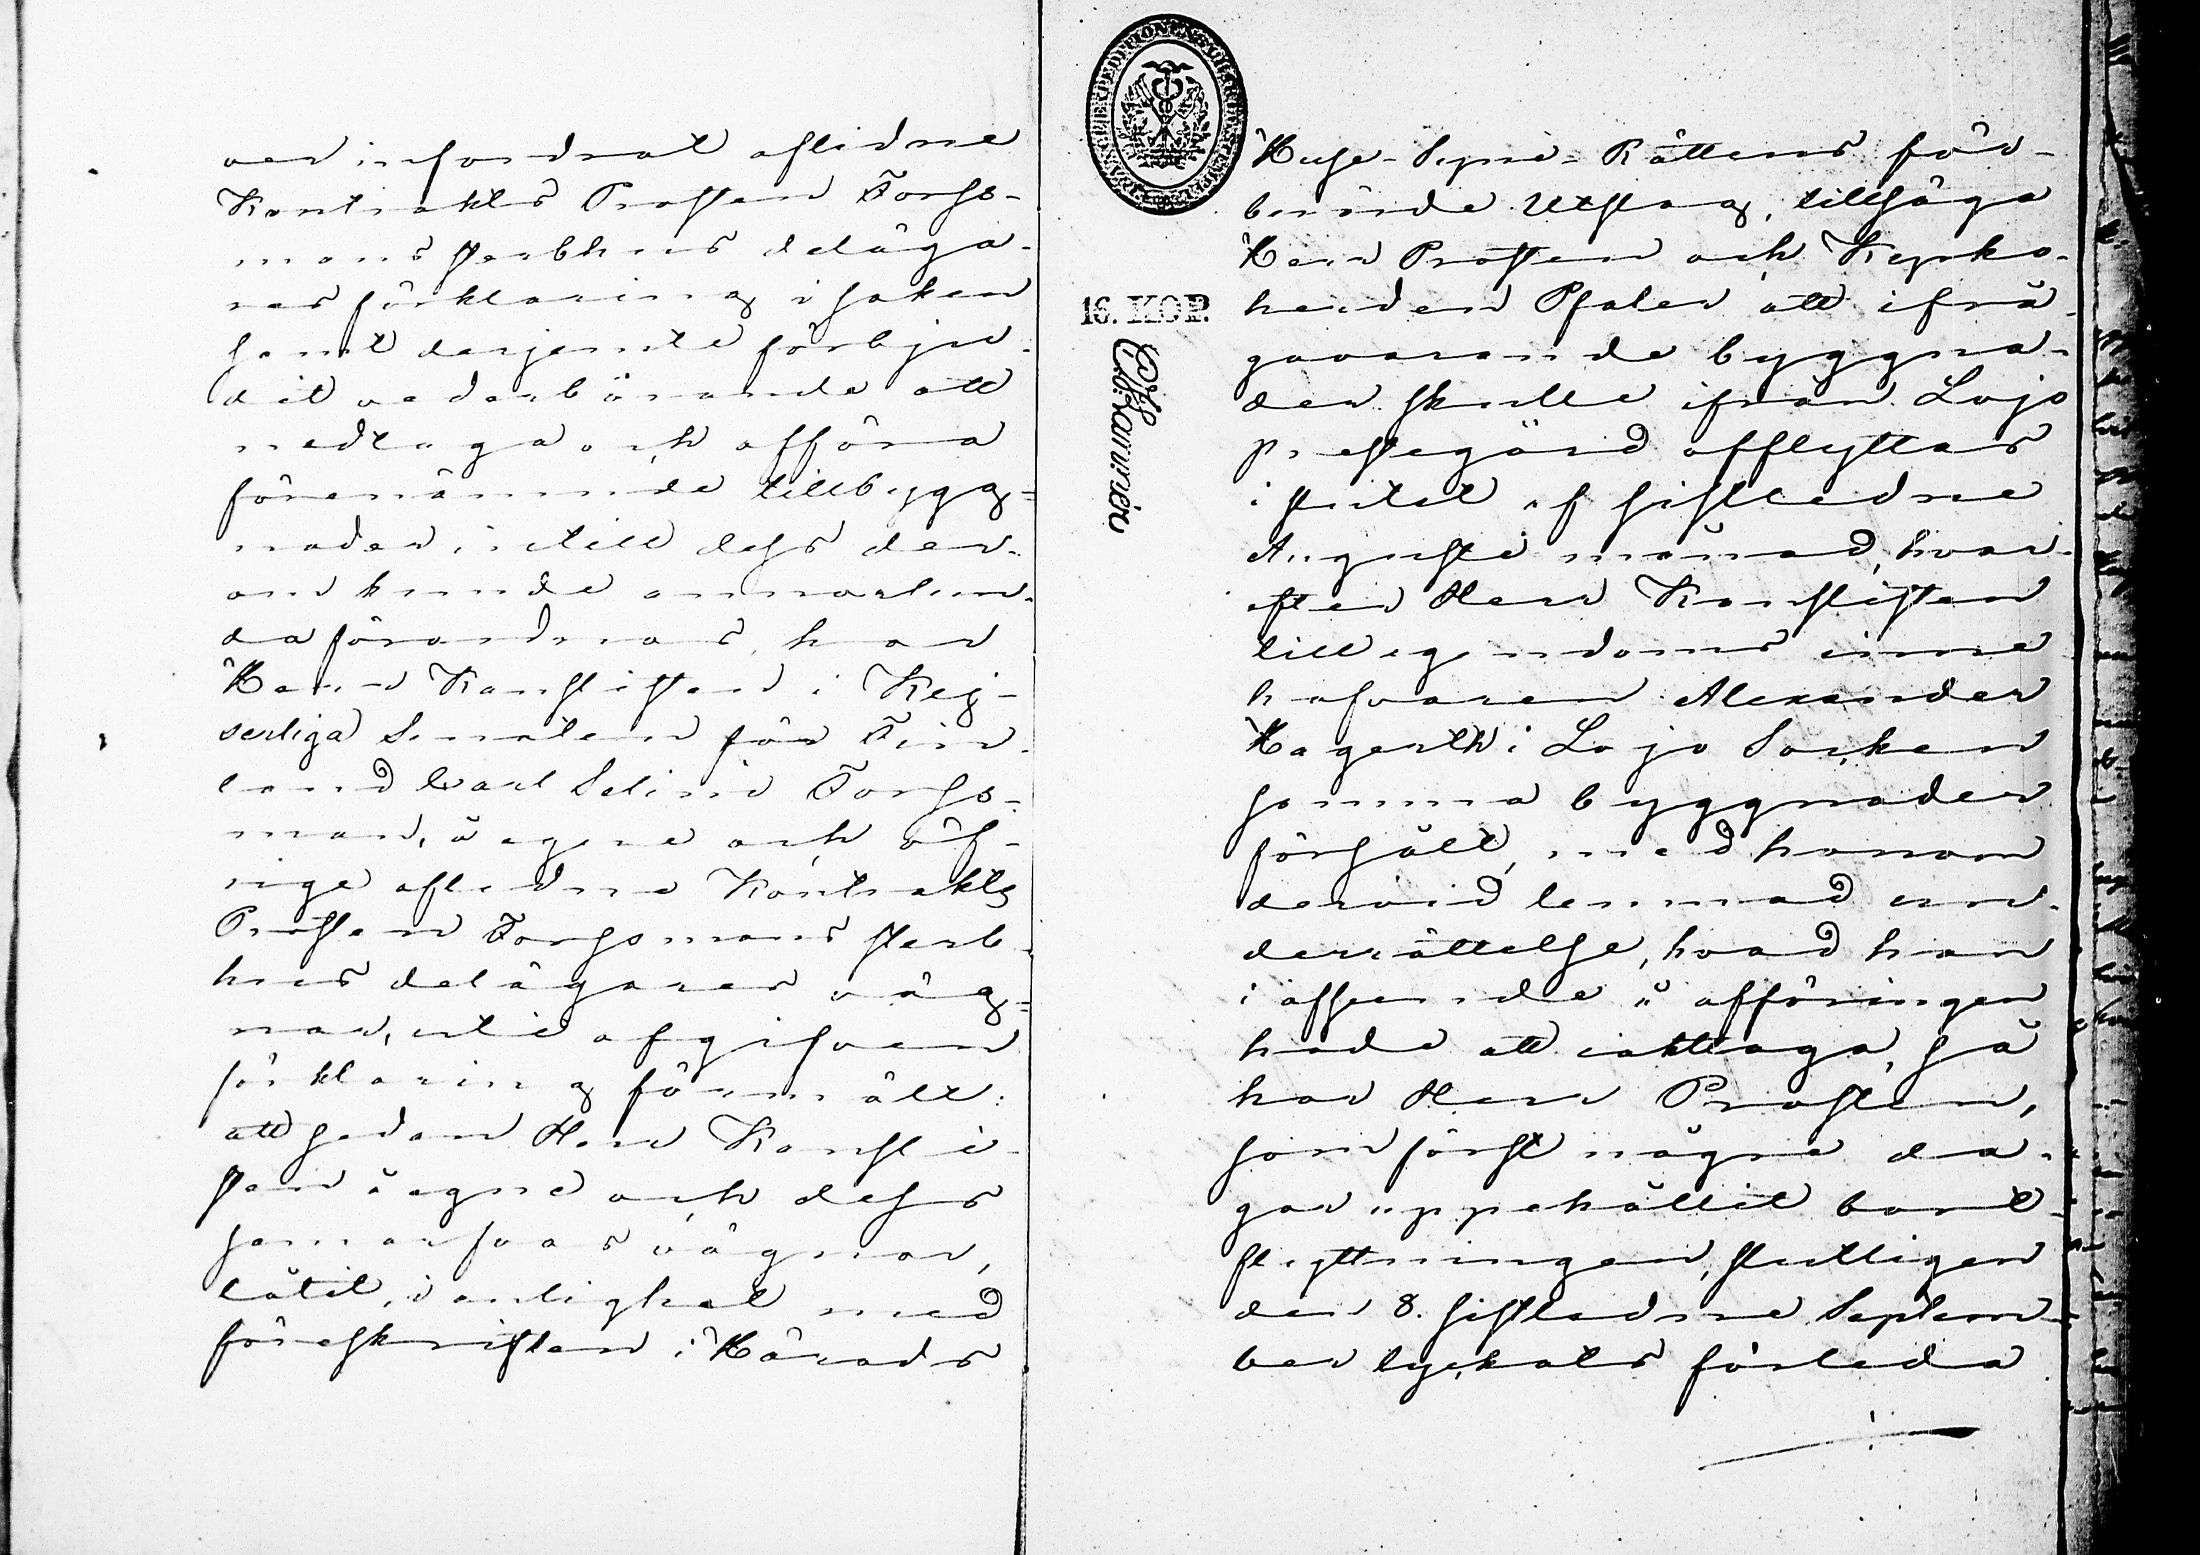 ver infordrat aflidne
Kontrakts Prosten Forss-
mans sterbhus deläga-
res förklaring i saken
samt derjemte förbju-
dit vederbörande att
nedtaga och afföra
förenämnde tillbygg=
nader, intill dess der-
om kunde annorlun-
da förordnas, har
Herr Kanslisten i Kej-
serliga Senaten för Fin-
land Carl Selim Forss-
man, å egne och öf-
rige aflidne Kontrakts
Prosten Forssmans sterb-
hus delägares väg=
nar, uti afgifven
förklaring förmält:
att sedan Herr Kansli-
sten å egne och dess
samarfvas vägnar,
låtit, i enlighet med
föreskriften i Härads
Huse-Syne-Rättens för-
berörde Utslag, tillsäga
Herr Prosten och Kyrko-
herden Pfaler att ifrå-
gavarande byggna-
der skulle ifrån Lojo
prestegård afflyttas
i slutet af sistledne
Augusti månad, hvar-
efter Herr Kanslisten
till egendoms inne
hafvaren Alexander
Hagerth i Lojo Socken
samma byggnader
försålt, med honom
dervid lemnad un-
derrättelse, hvad han
i afseende å afföringen
hade att iakttaga, så
har Herr Prosten,
som först några da-
gar uppehållit bort-
flyttningen, slutligen
den 8. sistledne Septem-
ber lyckats förleda
16. KOP.